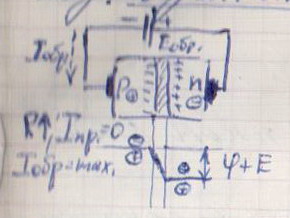 +
Eобр.
Iобр.
P n
R↑, Iпр.=0
Iобр=max.
φ+E